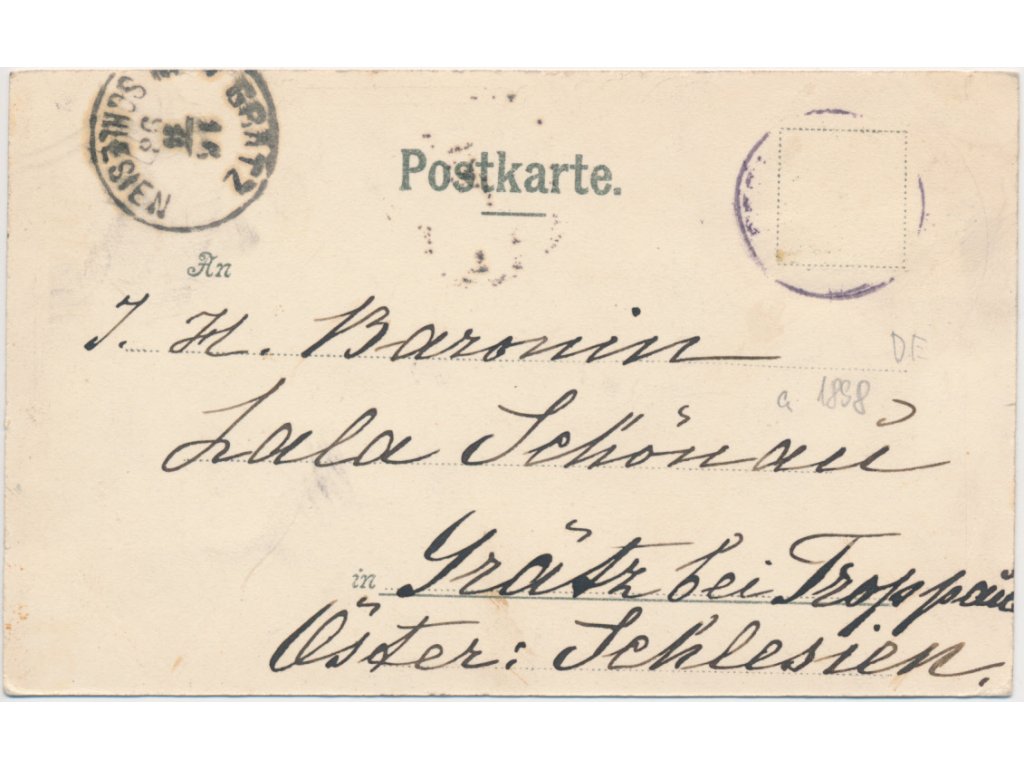 GRÄTZ
15
11
98
SCHLESIEN
Postkarte.
An
I. H. Baronin
Lala Schönau
in Grätz bei Troppau
Öster: Schlesien.
DE
a 1898